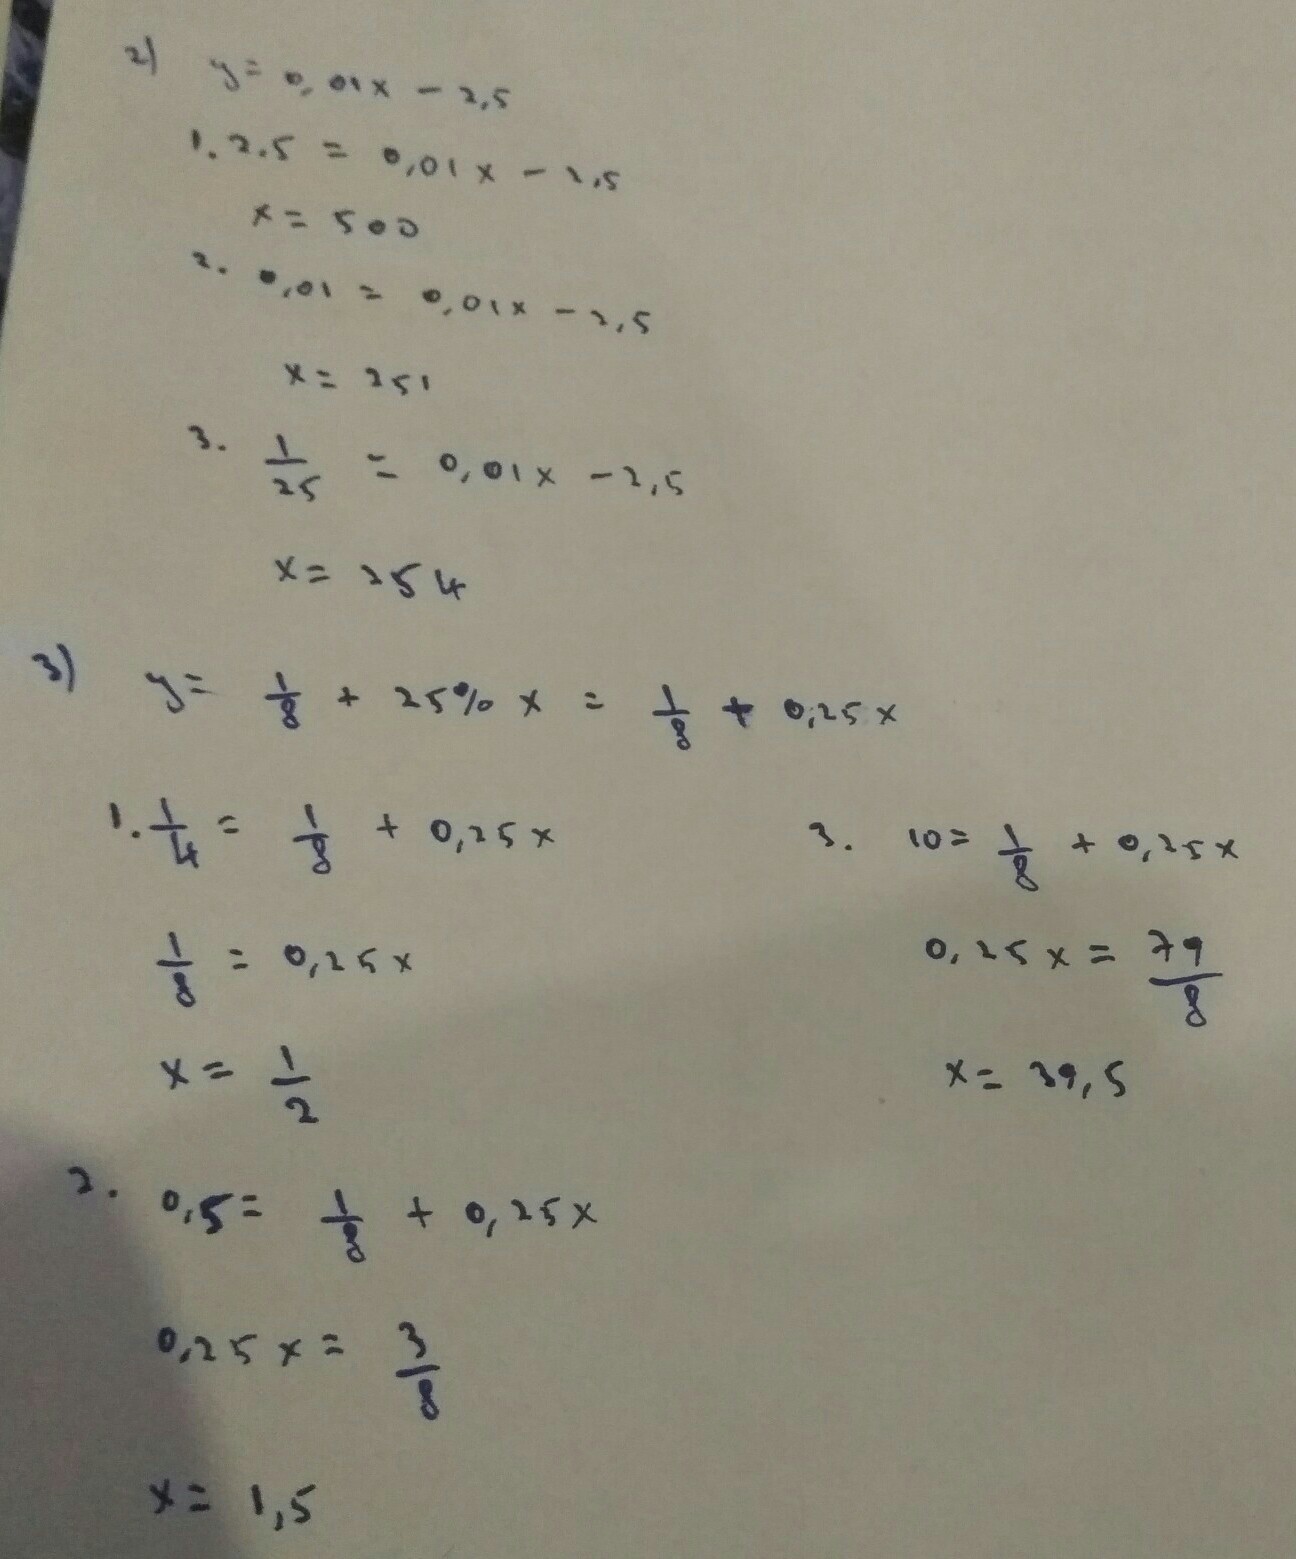 2) y = 0,01x - 2,5
1. 2.5 = 0,01x - 2,5
x = 500
2. 0,01 = 0,01x - 2,5
x = 251
3. 1/25 = 0,01x - 2,5
x = 254
3) y = 1/8 + 25% x = 1/8 + 0,25x
1. 1/4 = 1/8 + 0,25x
1/8 = 0,25x
x = 1/2
2. 0,5 = 1/8 + 0,25x
0,25x = 3/8
x = 1,5
3. 10 = 1/8 + 0,25x
0,25x = 79/8
x = 39,5